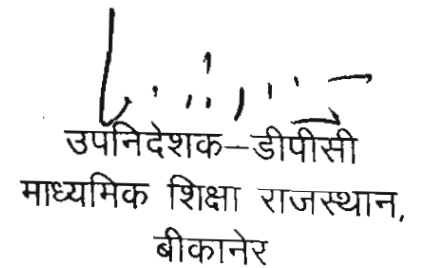 उपनिदेशक–डीपीसी
माध्यमिक शिक्षा राजस्थान,
बीकानेर